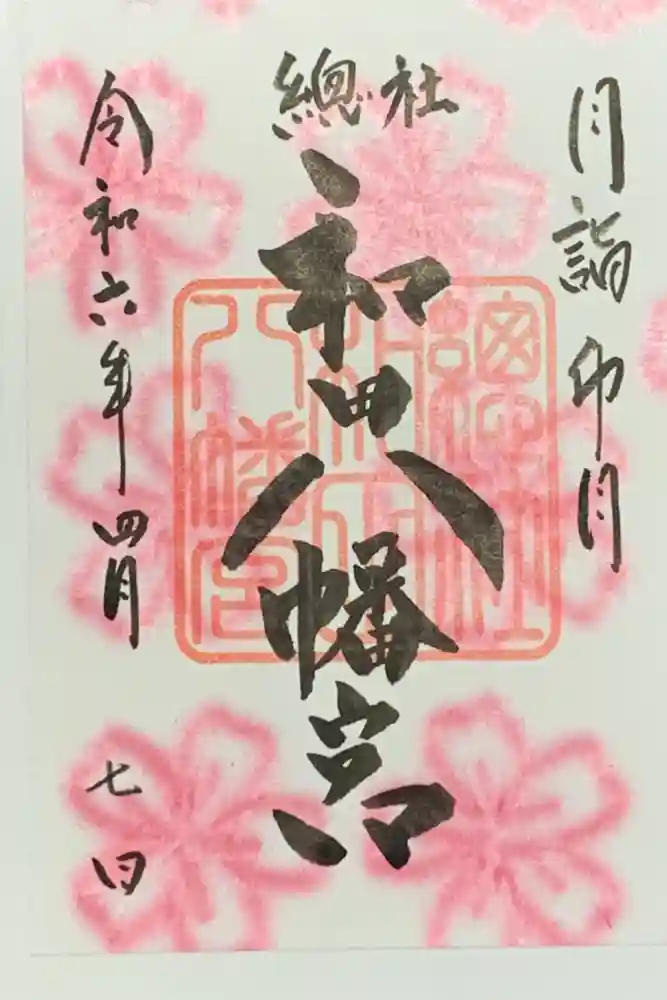 月詣 卯月
總社
和田八幡宮
令和六年四月 七日
總社
和田
八幡宮